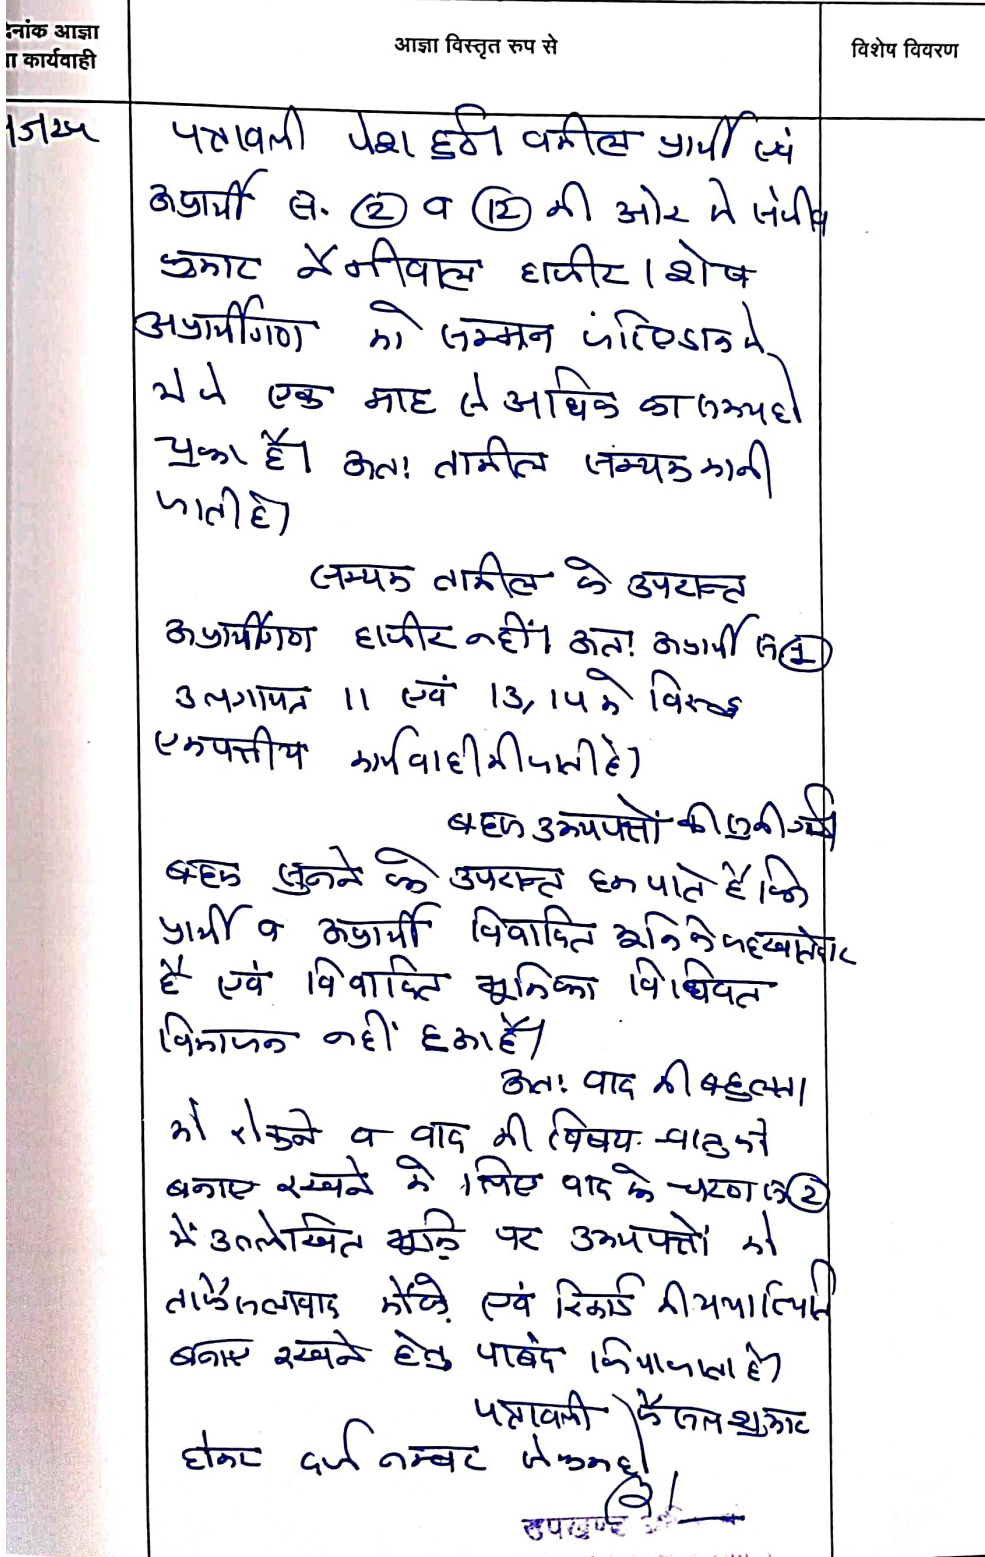 दिनांक आज्ञा
या कार्यवाही
आज्ञा विस्तृत रुप से
विशेष विवरण
पत्रावली पेश हुई। वकील प्रार्थी एवं
अप्रार्थी सं. (2) व (12) की ओर से संजीव
कुमार हाजीर। शेष
अप्रार्थीगण को सम्मन रजि. डाक से
भेजे एक माह से अधिक का समय हो
चुका है। अतः तामील सम्यक मानी
जाती है।
सम्यक तामील के उपरान्त
अप्रार्थीगण हाजीर नहीं। अतः अप्रार्थी सं (1)
3 लगायत 11 एवं 13, 14 के विरूद्ध
एकपक्षीय कार्यवाही की जाती है।
बहस उभयपक्षों की सुनी गयी
बहस सुनने के उपरान्त हम पाते हैं कि
प्रार्थी व अप्रार्थी विवादित भूमि के सहखातेदार
है एवं विवादित भूमि का विधिवत
विभाजन नहीं हुआ है।
अतः वाद की बहुलता
को रोकने व वाद की विषय-वस्तु को
बनाए रखने के लिए वाद के चरण सं (2)
में उल्लेखित भूमि पर उभयपक्षों को
ताफैसलावाद मौके एवं रिकार्ड की यथास्थिति
बनाए रखने हेतु पाबंद किया जाता है।
पत्रावली फैसल शुमार
होकर दर्ज नम्बर से कम हो।
उपखण्ड